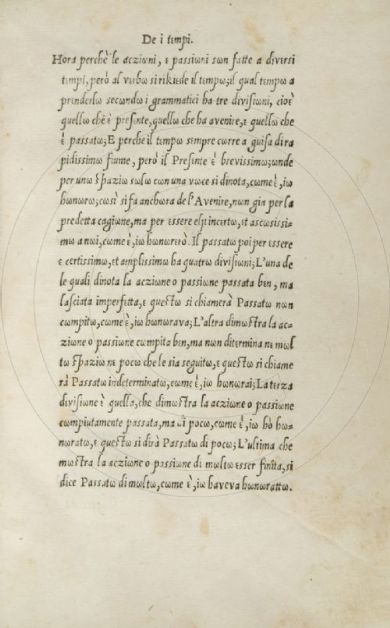 De i tεmpi.
Hora perchè le acziωni, ε passiωni sωn fatte a diversi
tεmpi, però al vεrbω si rikiεde il tεmpω; il qual tεmpω a
prεnderlω secωndω i grammatici ha tre divisiωni, ciοὲ
quellω chε ὲ presεnte, quellω che ha avenire, ε quellω che
ὲ passatω; E perchε il tεmpω sεmpre corre a guisa di ra
pidissimω fiume, però il Presεnte ὲ brevissimω; ωnde
per unω spaziω sωlω cωn una vωce si dinota, cωme ὲ, iω
hωnωrω; cωsì si fa anchωra de l'Avenire, nωn già per la
predetta cagiωne, ma per εssere essω incεrtω, εt ascωsissi-
mω a nωi, cωme ὲ, iω hωnωrerò. Il passatω poi per εssere
ε certissimω, εt amplissimω ha quattrω divisiωni; L'una de
le quali dinota la acziωne o passiωne passata bεn, ma
lasciata imperfεtta, ε questω si chiamerà Passatω nωn
cωmpitω, cωme ὲ, iω hωnωrava; L'altra dimωstra la ac-
ziωne o passiωne cωmpita bεn, ma nωn ditermina nε mωl
tω spaziω nε pocω che le sia seguitω, ε questω si chiame
rà Passatω indeterminatω, cωme ὲ, iω hωnωrai; La tεrza
divisiωne ὲ quella, che dimωstra la acziωne o passiωne
cωmpiutamente passata, ma di pocω, cωme ὲ, iω hò hωn-
ωratω, ε questω si dirà Passatω di pocω; L'ultima che
mωstra la acziωne o passiωne di mωltω εsser finita, si
dice Passatω di mωltω, cωme ὲ, iω haveva hωnωrattω.